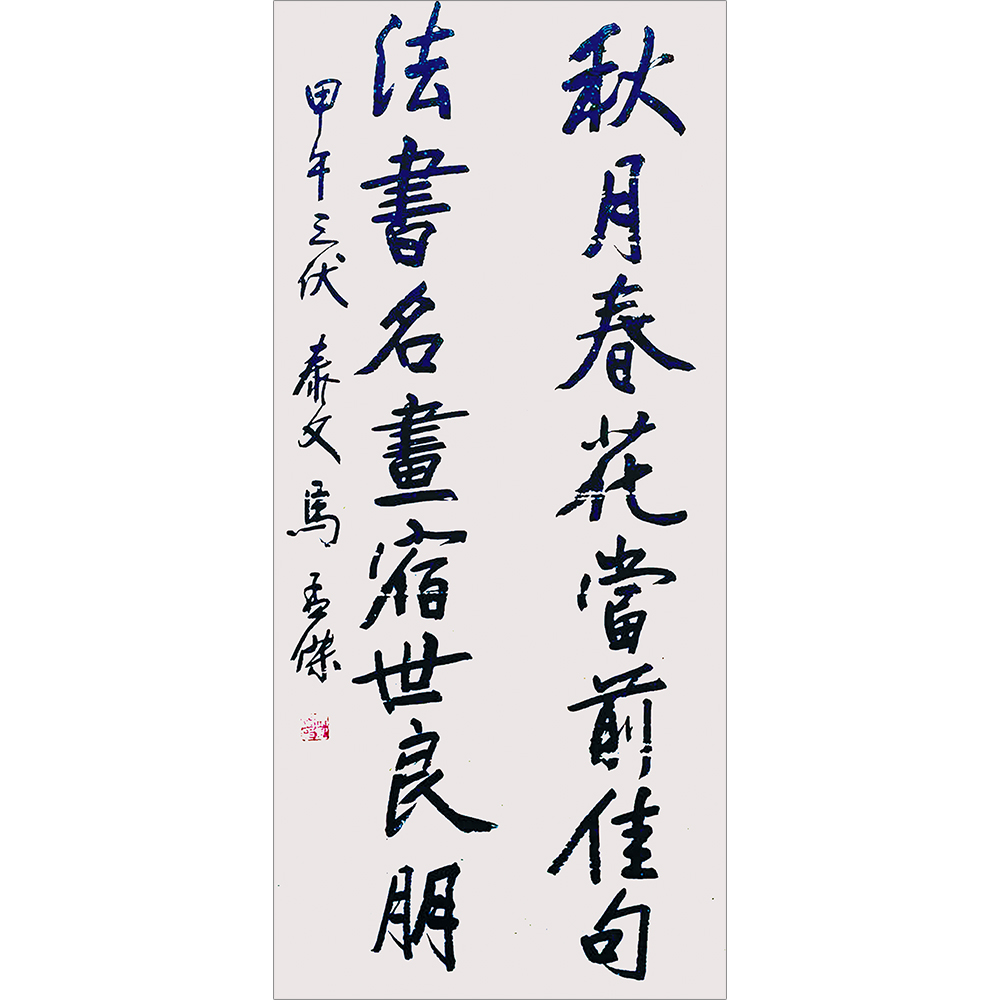 秋月春花當前佳句
法書名畫宿世良朋
甲午三伏 泰文 馬孟傑